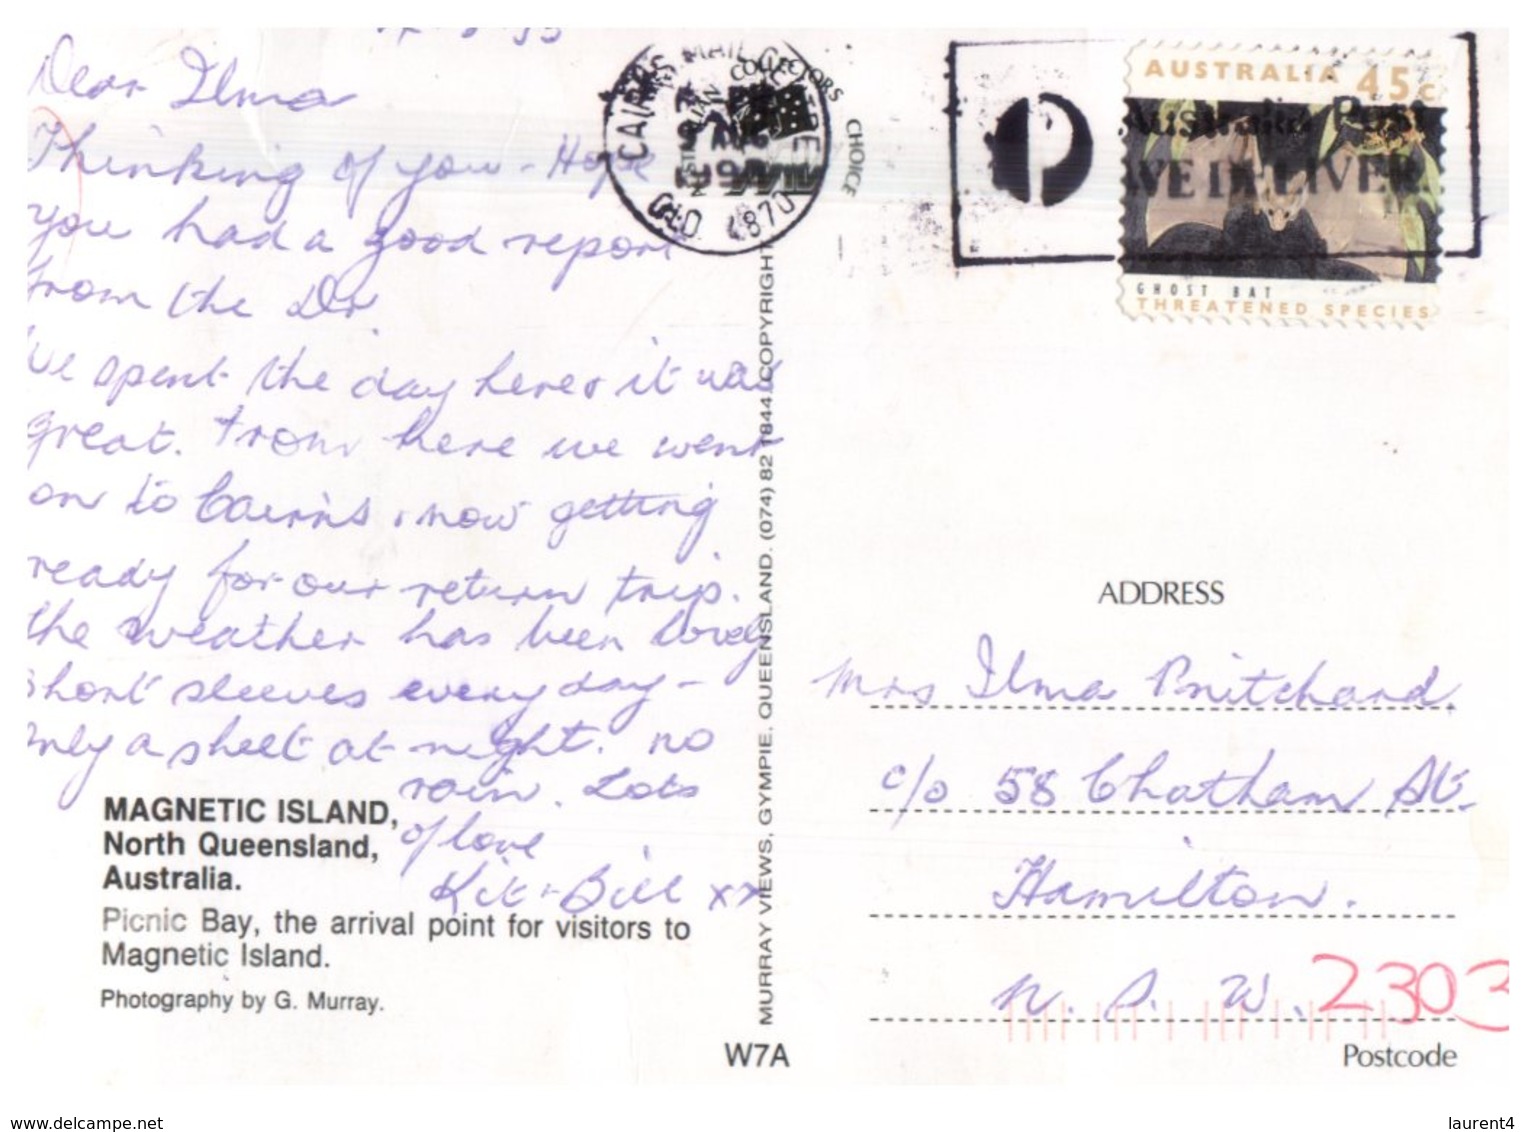 Dear Ilma
Thinking of you - Hope
you had a good report
from the Dr.
We spent the day here & it was
great. From here we went
on to Cairns & now getting
ready for our return trip.
the weather has been lovely
short sleeves every day -
only a sheet at night. no
rain. Lots
of love
Kit & Bill xx
MAGNETIC ISLAND,
North Queensland,
Australia.
Picnic Bay, the arrival point for visitors to
Magnetic Island.
Photography by G. Murray.
MURRAY VIEWS, GYMPIE, QUEENSLAND. (074) 82 1844 COPYRIGHT
W7A
COLLECTORS
CHOICE
CAIRNS MAIL CENTRE
QLD 4870
Australia Post
WE DELIVER
AUSTRALIA 45c
GHOST BAT
THREATENED SPECIES
ADDRESS
Mrs Ilma Pritchard.
c/o 58 Chatham St.
Hamilton.
N. S. W. 2303
Postcode
delcampe.net
laurent4